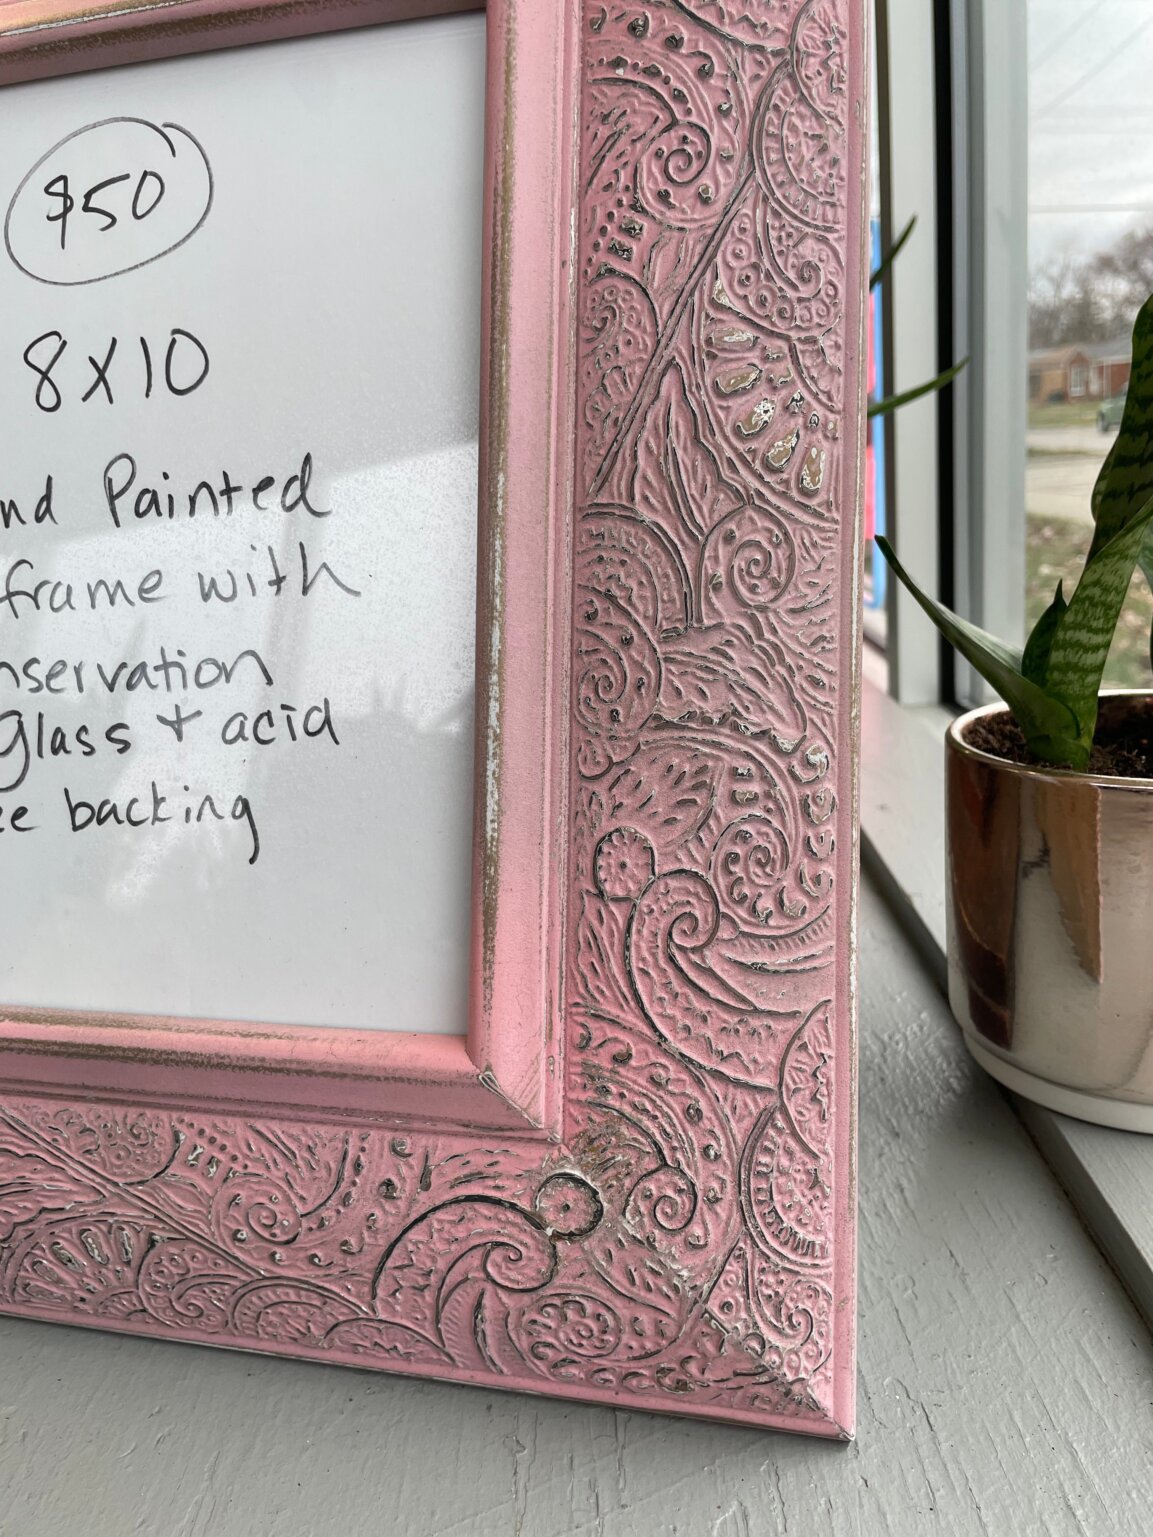 $50
8x10
nd Painted
frame with
nservation
glass + acid
ee backing